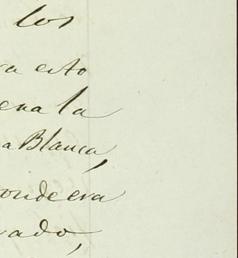 los
ra esto
ena la
a Blanca,
onde era
vado,